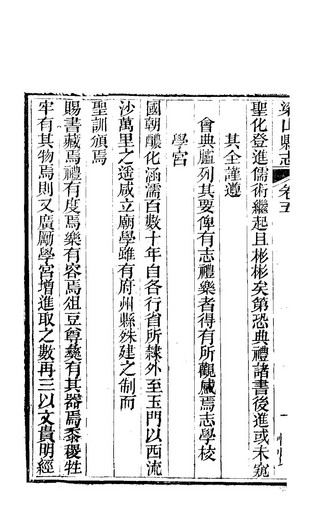 梁山縣志 卷五
聖化登進儒術繼起且彬彬矣第恐典禮諸書後進或未窺
其全謹遵
會典臚列其要俾有志禮樂者得有所觀感焉志學校
學宮
國朝釀化涵濡百數十年自各行省所隸外至玉門以西流
沙萬里之遙咸立廟學雖有府州縣殊建之制而
聖訓頒焉
賜書藏焉禮有度焉樂有容焉俎豆尊彝有其器焉黍稷牲
牢有其物焉則又廣勵學宮增進取之數再三以文貴明經